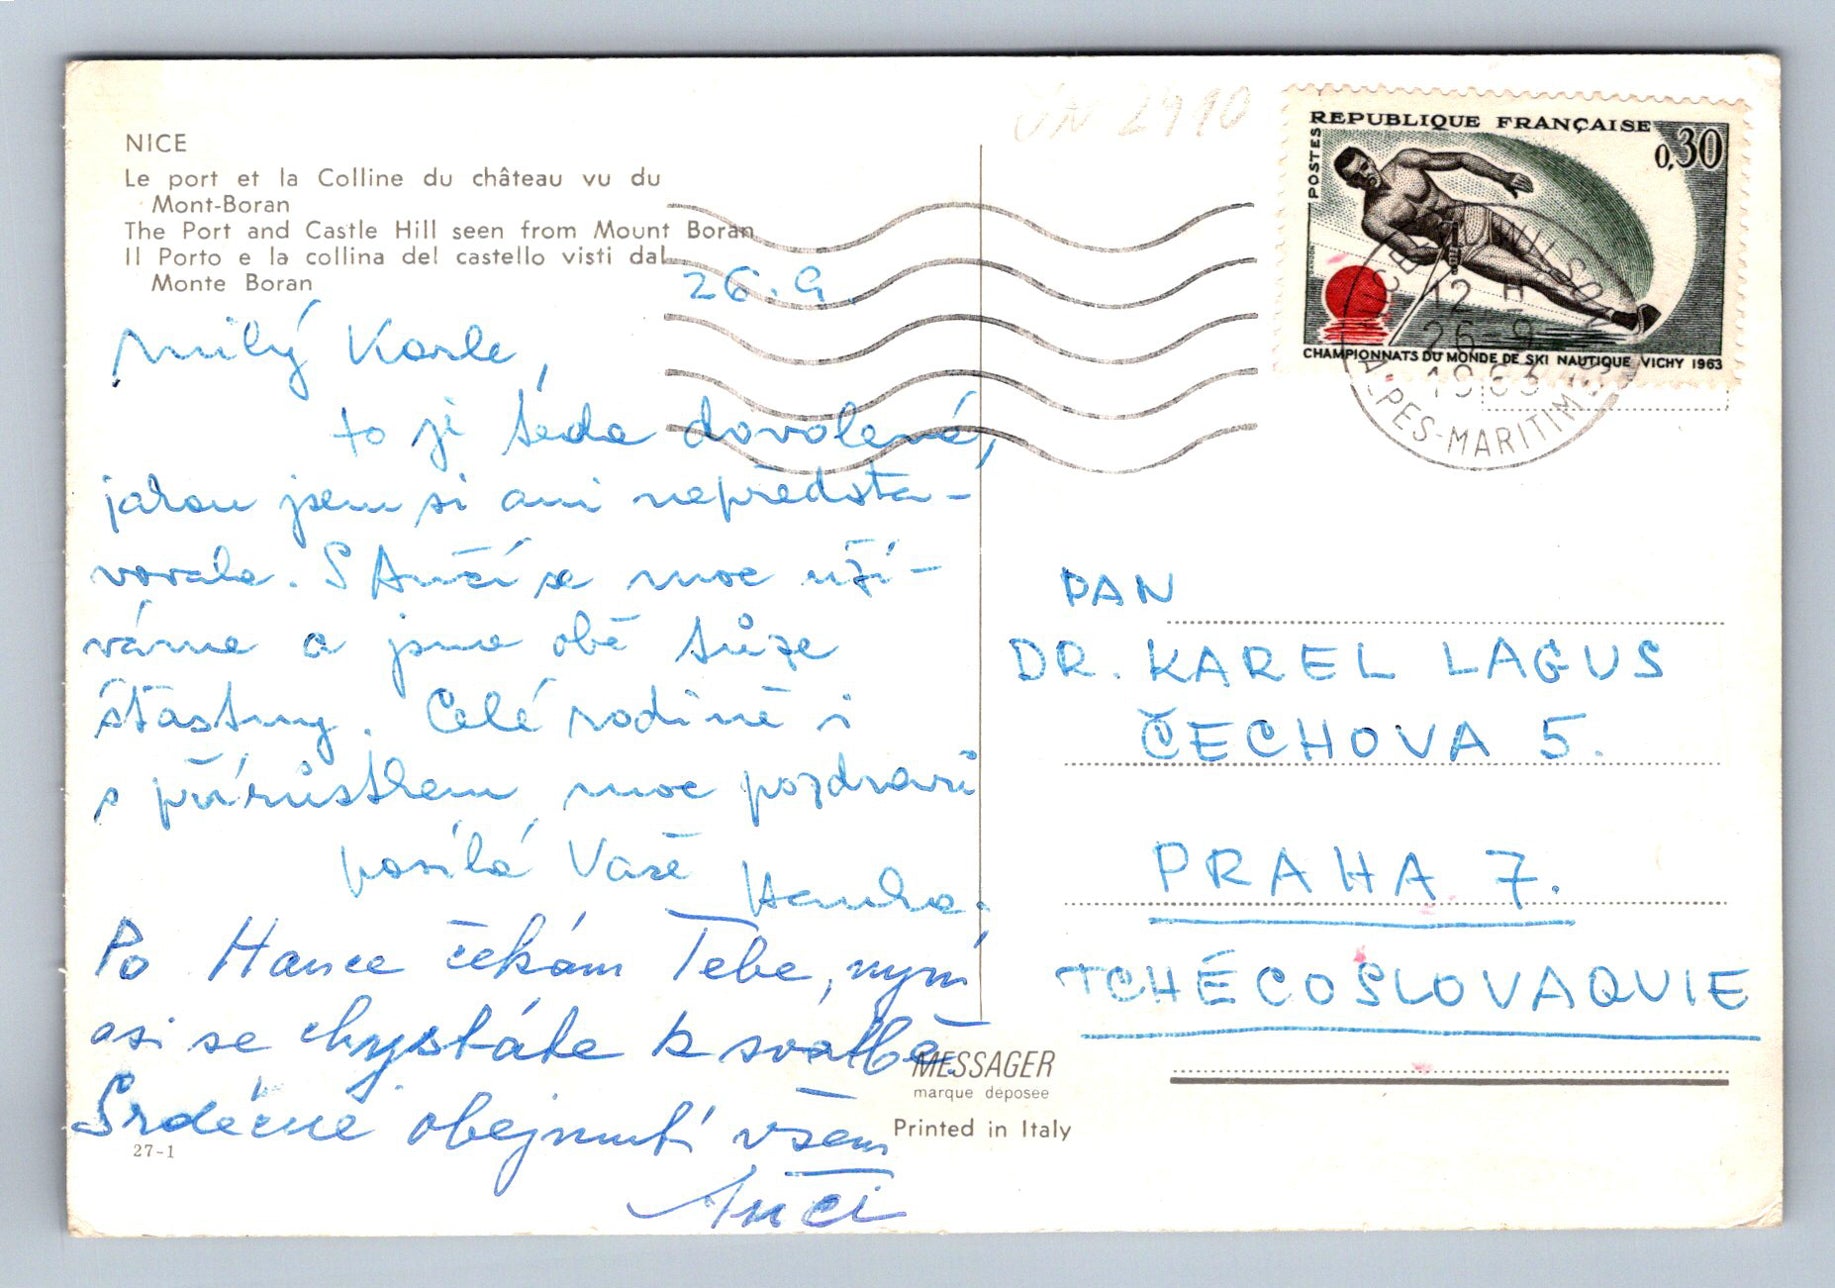 NICE
Le port et la Colline du château vu du
Mont-Boran
The Port and Castle Hill seen from Mount Boran
Il Porto e la collina del castello visti dal
Monte Boran
26.9.
Milý Karle,
to je téda dovolená,
jakou jsem si ani nepředsta-
vovala. S Anči se moc uží-
váme a jsme obě tůze
šťastny. Celé rodině i
s přírůstkem moc pozdravů
posílá Vaše
Hanka.
Po Hance čekám Tebe, nyní
asi se chystáte k svatbě.
Srdečné obejmutí všem
Anči
27-1
MESSAGER
marque déposée
Printed in Italy
ČN 2910
REPUBLIQUE FRANÇAISE
POSTES
0,30
CHAMPIONNATS DU MONDE DE SKI NAUTIQUE VICHY 1963
12 H
26-9
1963
ALPES-MARITIMES
PAN
DR. KAREL LAGUS
ČECHOVA 5.
PRAHA 7.
TCHÉCOSLOVAQUIE